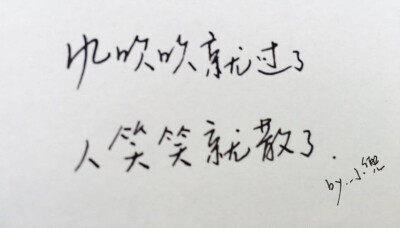 风吹吹就过了
人笑笑就散了.
by..小